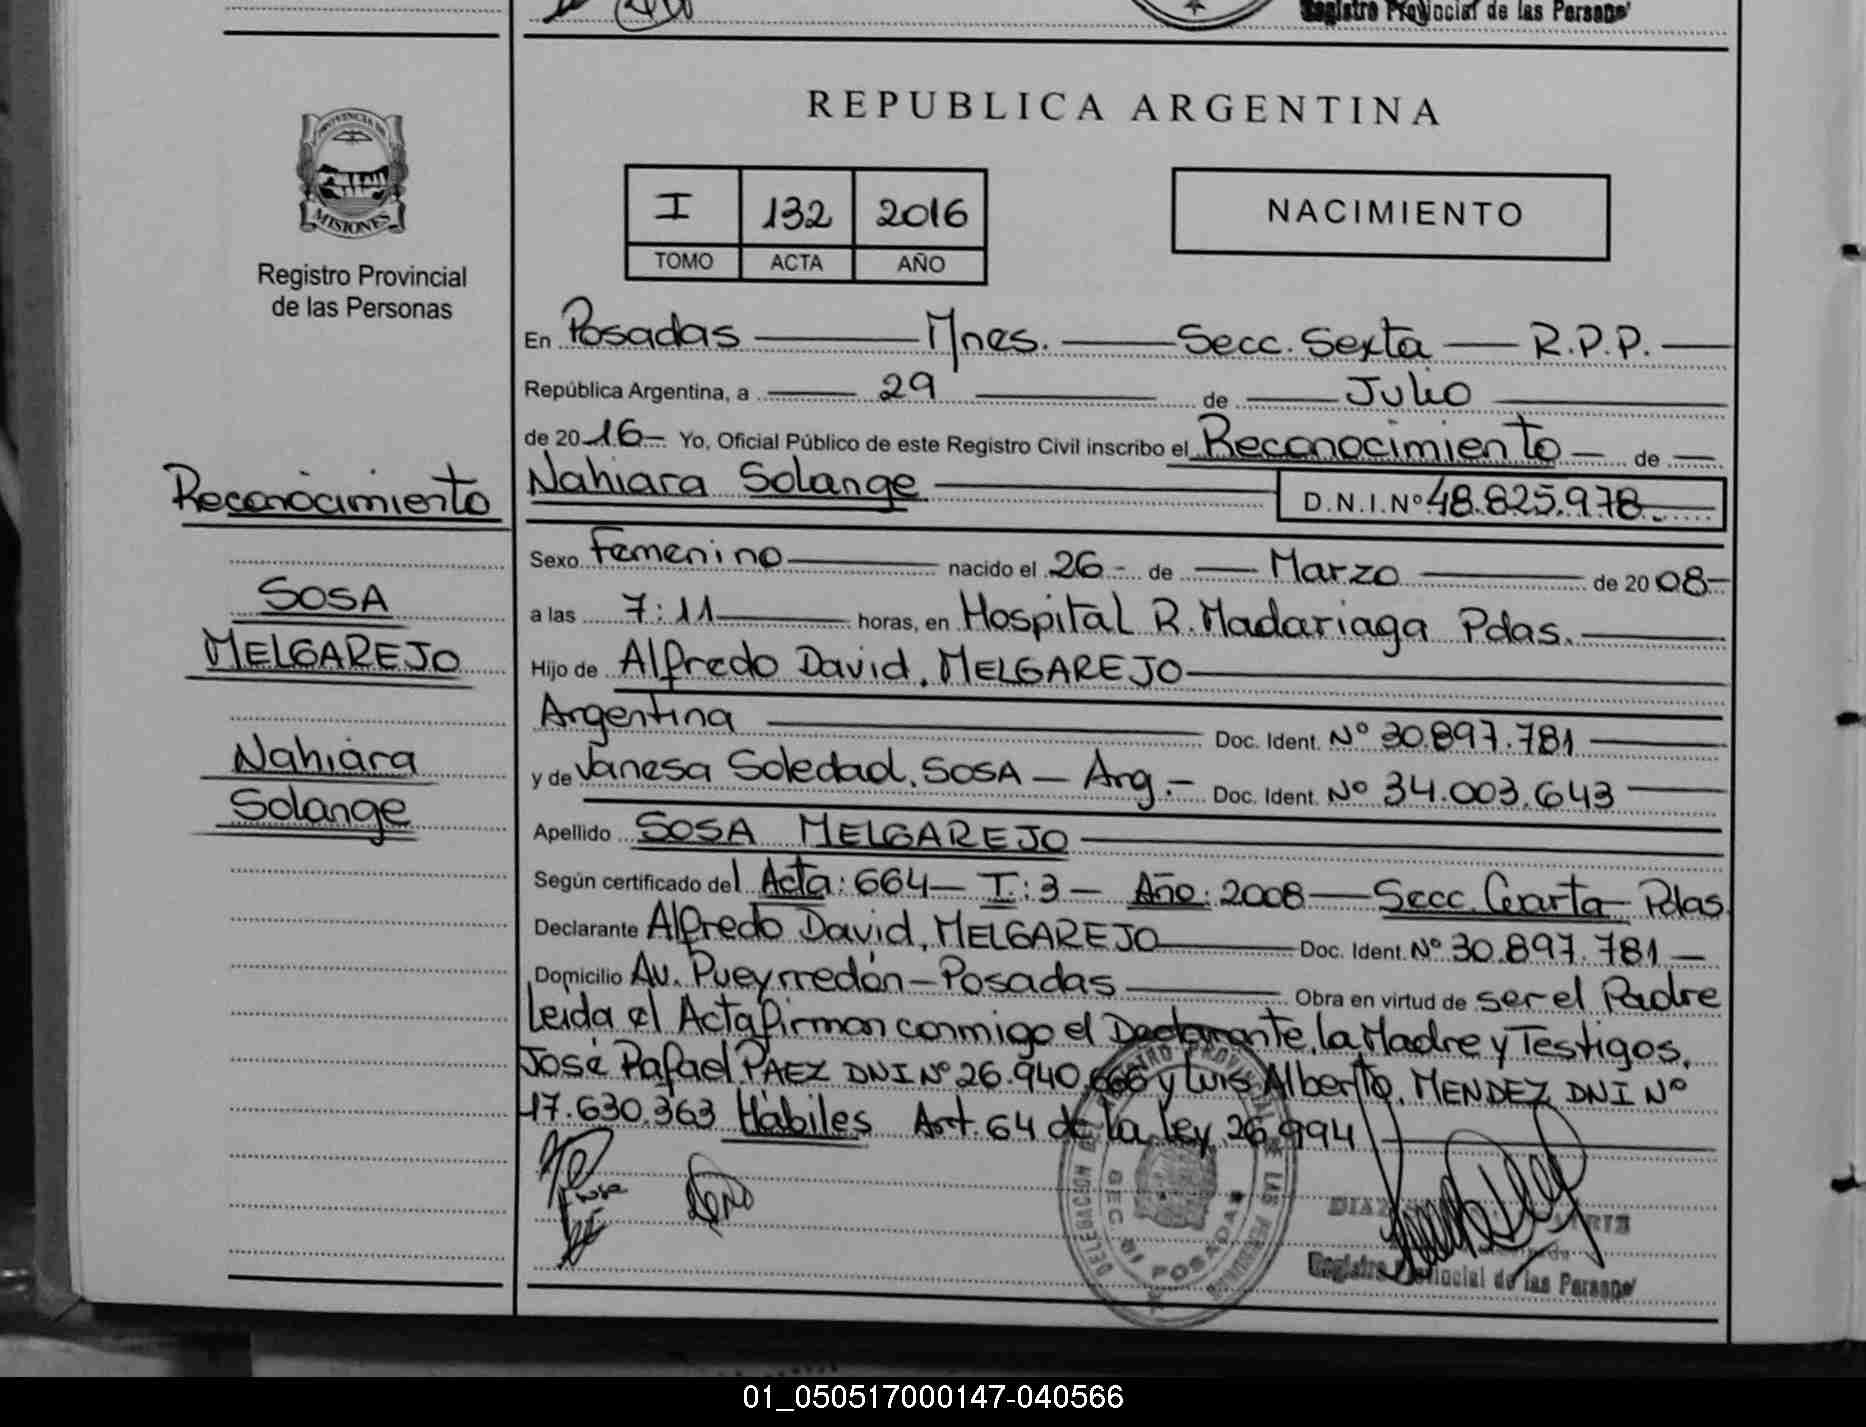 Registro Provincial de las Persona
REPUBLICA ARGENTINA
PROVINCIA DE
MISIONES
Registro Provincial
de las Personas
I 132 2016
TOMO ACTA AÑO
NACIMIENTO
En Posadas Mnes. Secc. Sexta R.P.P.
República Argentina, a 29 de Julio
de 20 16 Yo, Oficial Público de este Registro Civil inscribo el Reconocimiento de
Nahiara Solange D.N.I.Nº 48.825.978
Sexo Femenino nacido el 26 de Marzo de 20 08
a las 7:11 horas, en Hospital R. Madariaga Pdas.
Hijo de Alfredo David, MELGAREJO
Argentina Doc. Ident. Nº 30.897.781
y de Vanesa Soledad, SOSA — Arg.- Doc. Ident. Nº 34.003.643
Apellido SOSA MELGAREJO
Según certificado del Acta: 664 — T: 3 — Año: 2008 — Secc. Cuarta Pdas
Declarante Alfredo David, MELGAREJO Doc. Ident. Nº 30.897.781
Domicilio Av. Pueyrredón - Posadas Obra en virtud de ser el Padre
Leída el Acta firman conmigo el Declarante, la Madre y Testigos,
José Rafael PAEZ DNI Nº 26.940.666 y Luis Alberto, MENDEZ DNI Nº
17.630.363 Hábiles Art. 64 de la Ley 26.994
Reconocimiento
SOSA
MELGAREJO
Nahiara
Solange
POSADAS
DIAZ
Registro Provincial de las Persona
01_050517000147-040566